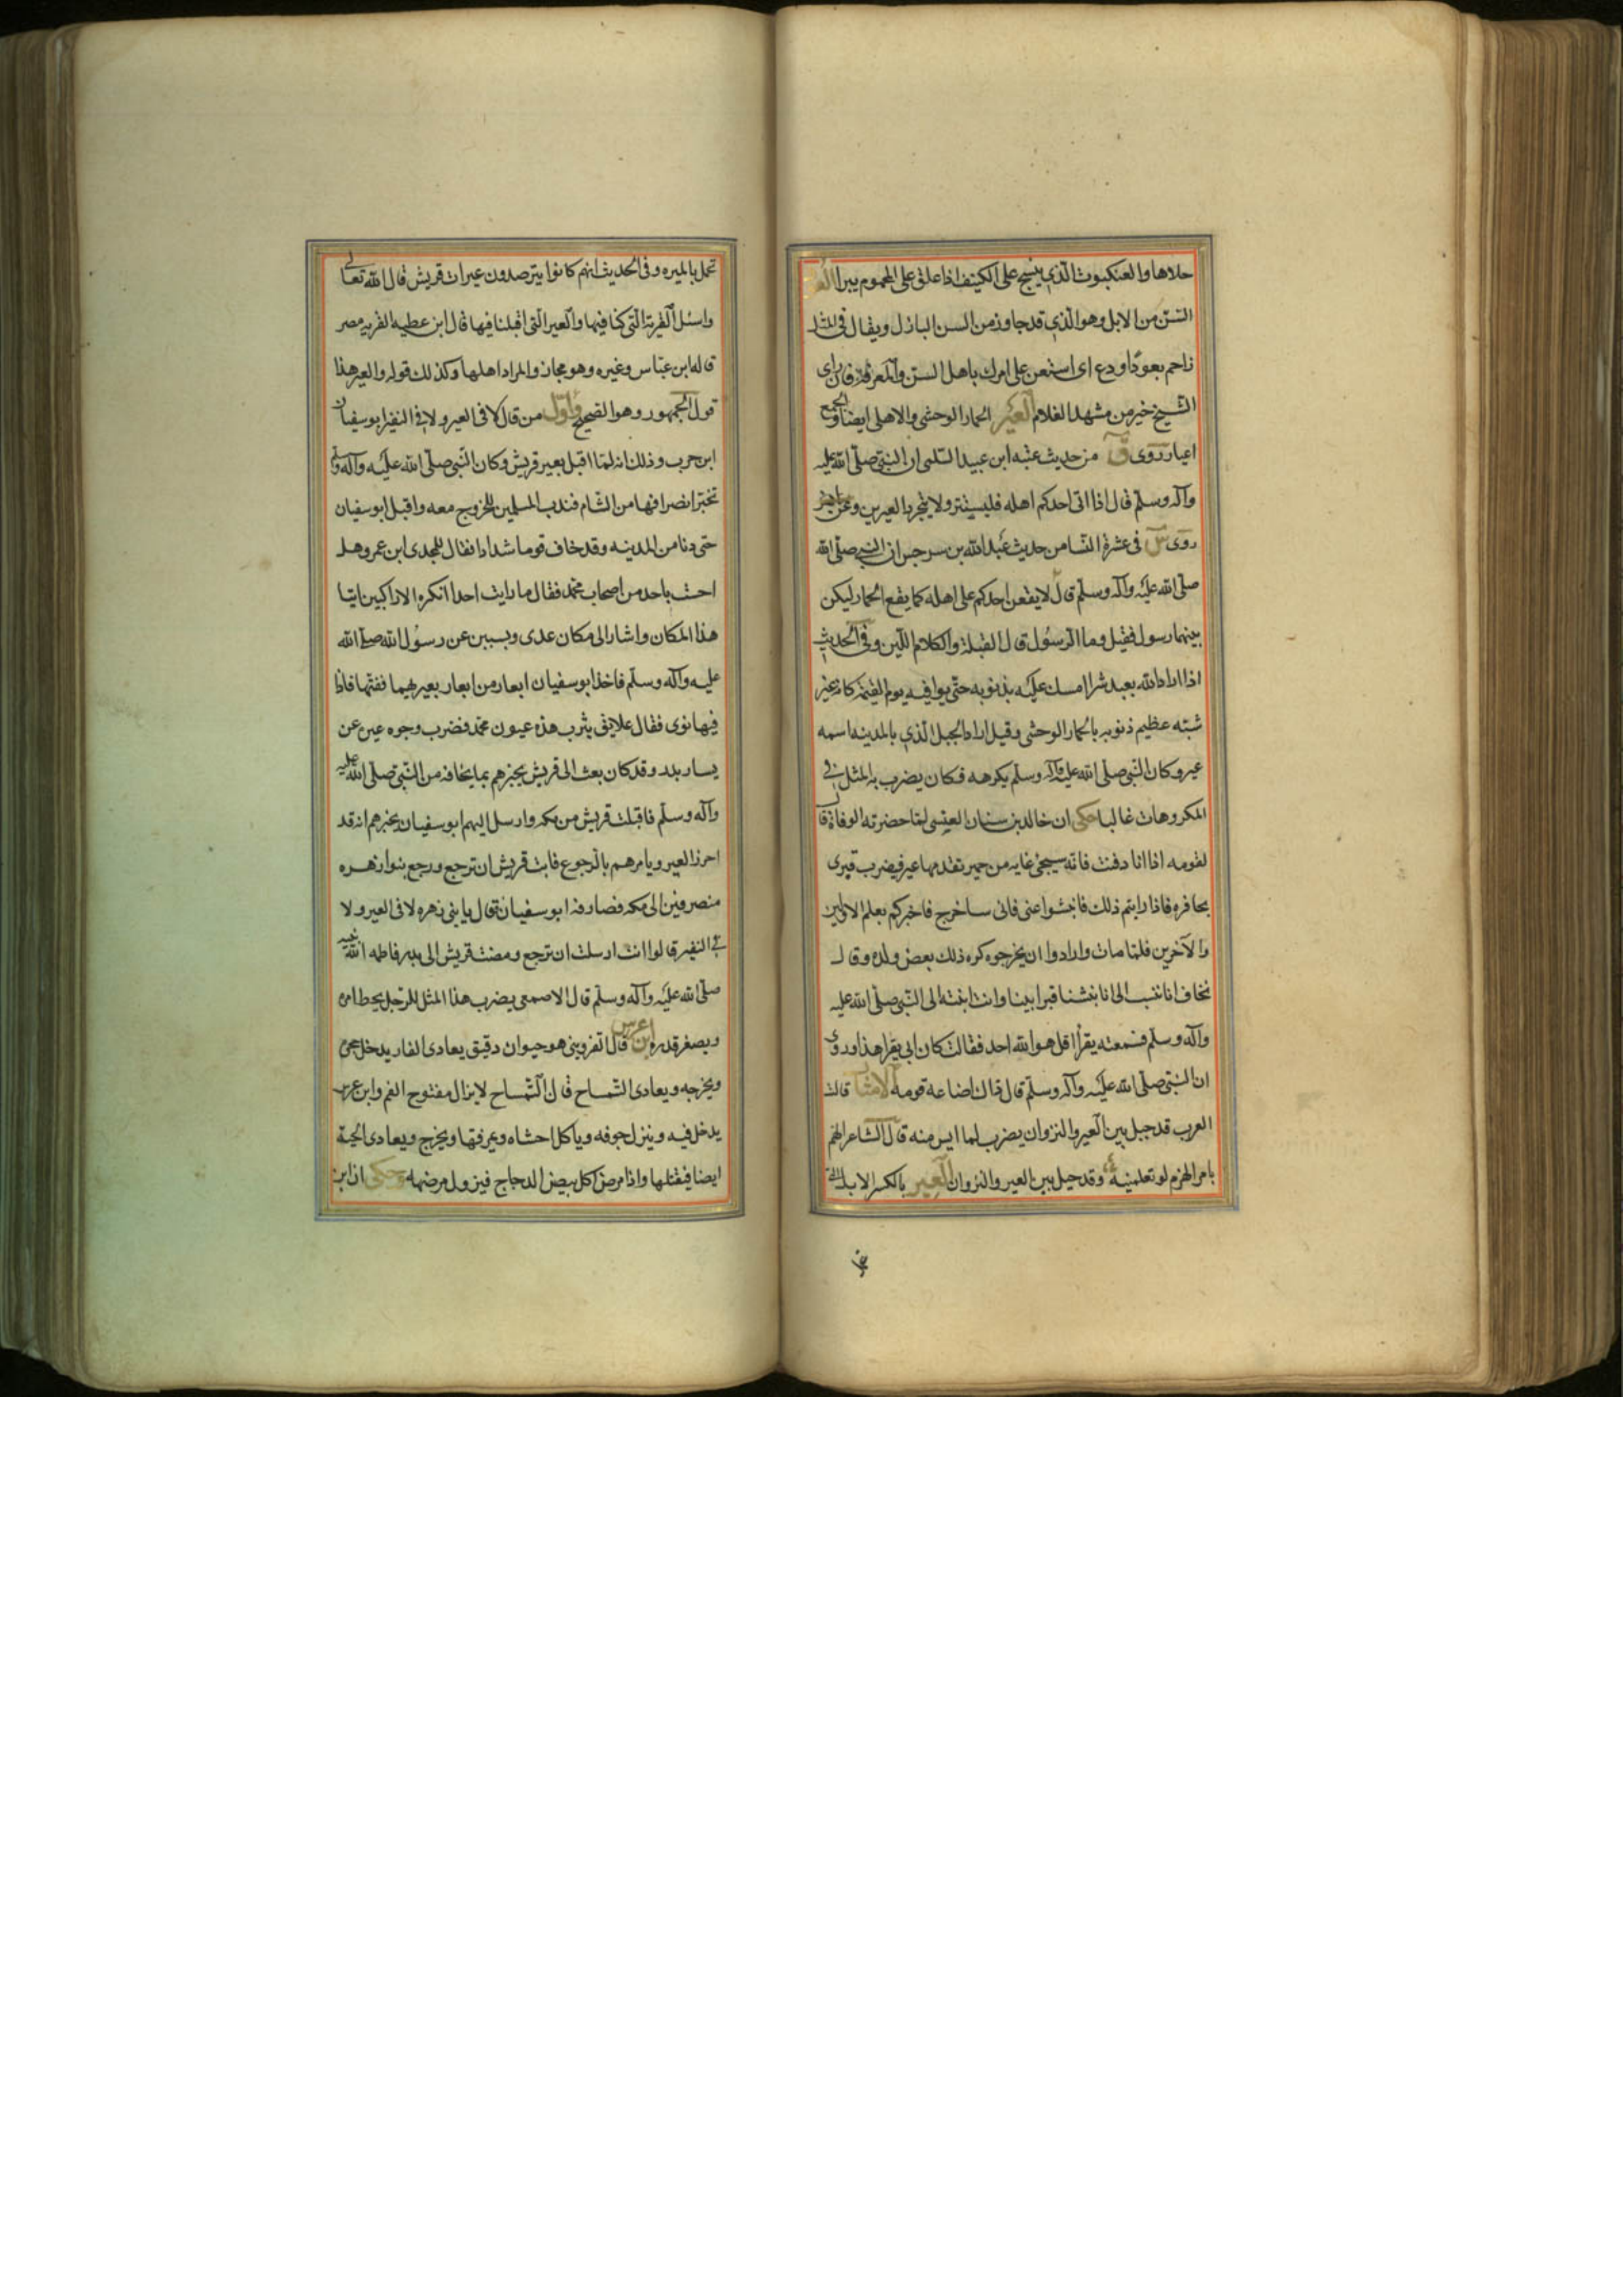 حلاها والعنكبوت الذي ينسج على الكنيف اذا علق على المحموم يبرا العود
السن من الابل وهو الذي قد جاوز من السن البازل ويقال فى المثل
زاحم بعود او دع اى استعن على امرك باهل السن والمعرفة فان راى
الشيخ خير من مشهد الغلام العير الحمار الوحشى والاهلى ايضا والجمع
اعيار روى ق من حديث عتبه ابن عبيد السلمى ان النبى صلى الله عليه
وآله وسلم قال اذا اتى احدكم اهله فليستتر ولا يتجرد العيرين وعن
روى س فى عشرة النسا من حديث عبد الله بن سرجس ان النبى صلى الله
صلى الله عليه وآله وسلم قال لا يقعن احدكم على اهله كما يقع الحمار ليكن
بينهما رسول فقيل وما الرسول قال القبلة والكلام اللين وفى الحديث
اذا اراد الله بعبد شرا امسك عليه بذنوبه حتى يوافيه يوم القيمة كانه عير
شبه عظيم ذنوبه بالحمار الوحشى وقيل اراد الجبل الذي بالمدينه اسمه
عير وكان النبى صلى الله عليه وآله وسلم يكرهه فكان يضرب به المثل فى
المكروهات غالبا حكى ان خالد بن سنان العبسى لما حضرته الوفاة قال
لقومه اذا انا دفنت فانه سيجئ غايه من حمير تقدمها عير فيضرب قبرى
بحافره فاذا رايتم ذلك فانبشوا عنى فانى ساخرج فاخبركم بعلم الاولين
والآخرين فلما مات وارادوا ان يخرجوه كره ذلك بعض ولده وقال
نخاف انا ننسب الى انا نبشنا قبر ابينا واتت ابنته الى النبى صلى الله عليه
وآله وسلم فسمعته يقرا قل هو الله احد فقالت كان ابى يقرا هذا وروى
ان النبى صلى الله عليه وآله وسلم قال ذاك اضاعه قومه الامثال قالت
العرب قد حيل بين العير والنزوان يضرب لما ايس منه قال الشاعر اهم
بامر الحزم لو تعلمينه وقد حيل بين العير والنزوان العير بالكسر الابل التى
تحمل بالميره وفى الحديث انهم كانوا يترصدون عيرات قريش قال الله تعالى
واسئل القرية التى كنا فيها والعير التى اقبلنا فيها قال ابن عطيه القريه مصر
قاله ابن عباس وغيره وهو مجاز والمراد اهلها وكذلك قوله والعير هذا
قول الجمهور وهو الصحيح واول من قال لا فى العير ولا فى النفير ابو سفيان
ابن حرب وذلك انه لما اقبل بعير قريش وكان النبى صلى الله عليه وآله وسلم
تخبر انصرافها من الشام فندب المسلمين للخروج معه واقبل ابو سفيان
حتى دنا من المدينه وقد خاف قوما شدادا فقال للمجدى ابن عمرو هل
احست باحد من اصحاب محمد فقال ما رايت احدا انكره الا راكبين اتيا
هذا المكان واشار الى مكان عدى وبسبس عن رسول الله صلى الله
عليه وآله وسلم فاخذ ابو سفيان ابعار من ابعار بعيرهما ففتها فاذا
فيها نوى فقال علايق يثرب هذه عيون محمد فضرب وجوه عيره عن
يسار بدر وقد كان بعث الى قريش يخبرهم بما يخافه من النبى صلى الله عليه
وآله وسلم فاقبلت قريش من مكه وارسل اليهم ابو سفيان يخبرهم انه قد
احرز العير ويامرهم بالرجوع فابت قريش ان ترجع ورجع بنوا زهره
منصرفين الى مكه فصادفه ابو سفيان فقال يا بنى زهره لا فى العير ولا
فى النفير قالوا انت ارسلت ان ترجع ومضت قريش الى بدر الله
صلى الله عليه وآله وسلم قال الاصمعى يضرب هذا المثل للرجل يحط امره
ويصغر قدره ابن عرس قال القزوينى هو حيوان دقيق يعادى الفار يدخل حجره
ويخرجه ويعادى التمساح قال التمساح لا يزال مفتوح الفم وابن عرس
يدخل فيه وينزل جوفه وياكل احشاه ويمزقها ويخرج ويعادى الحية
ايضا فيقتلها واذا مرض اكل بيض الدجاج فيزول مرضه وحكى ان ابن
تحمل